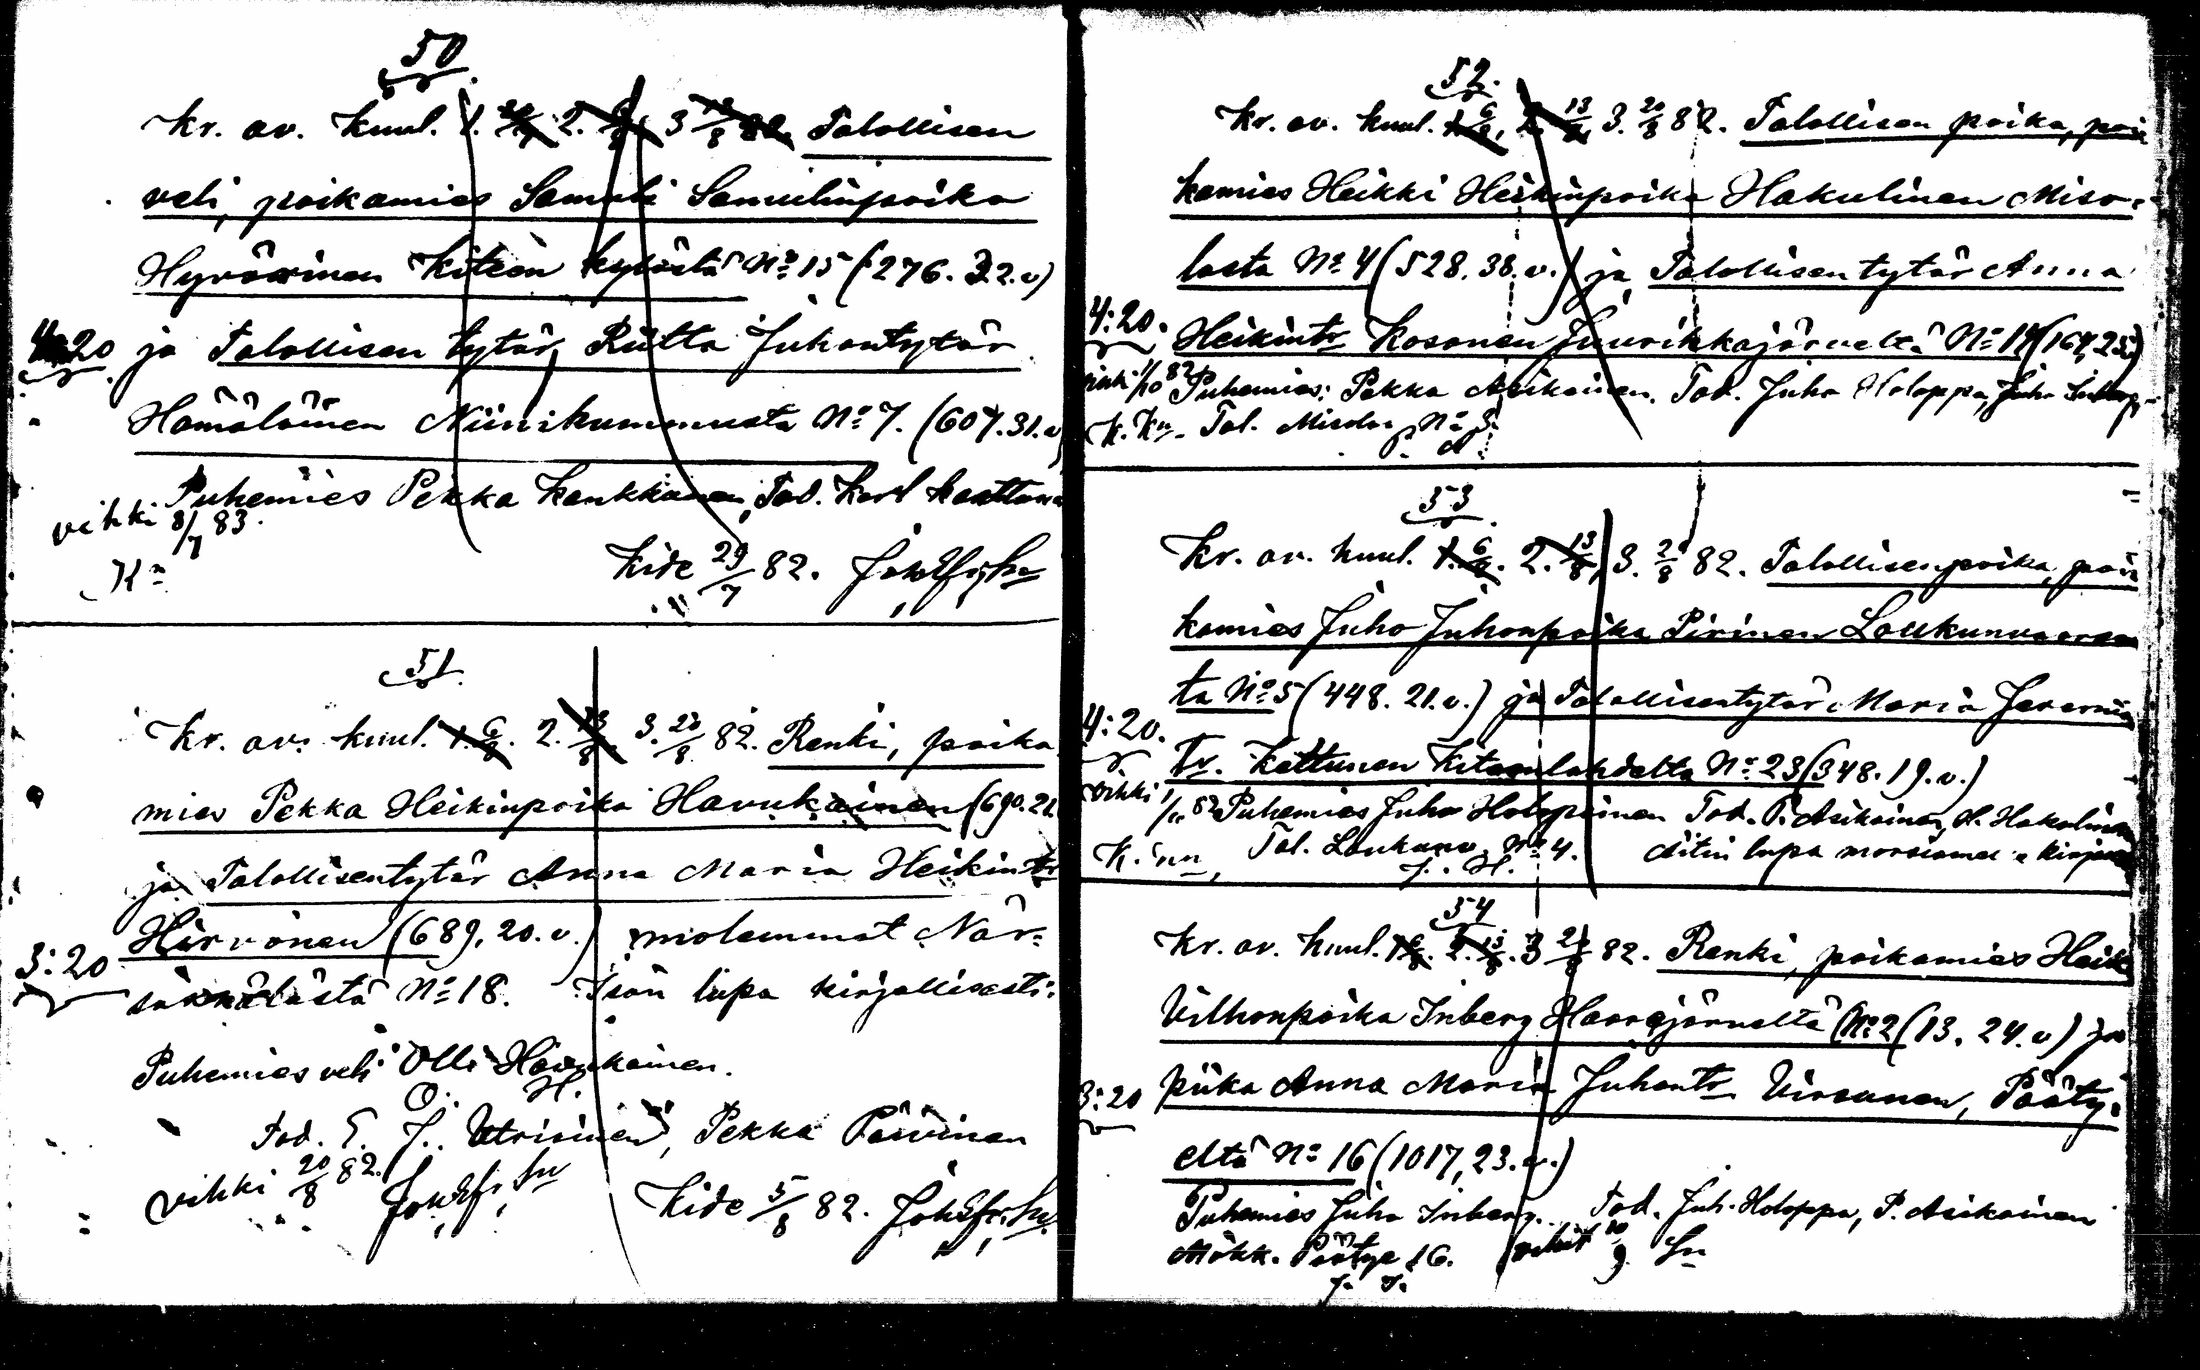 50
Kr. av. kuul. 1. 2. 3 13/8 82. Talollisen
veli, poikamies Samuli Samulinpoika
Hyvärinen Kiteen kylästä No 15 (276. 32. v)
4:20 ja Talollisen tytär, Riitta Juhontytär
Hämäläinen Niinikummusta No 7. (607. 31. v
Puhemies Pekka Kankkunen, Tod. Karl
vihki 8/7 83.
Kide 29/7 82.
51.
Kr. av. kuul. 1. 6/8. 2. 13/8 3. 20/8 82. Renki, poika
mies Pekka Heikinpoika Havukainen (690. 21
ja Talollisentytär Anna Maria Heikintr
Hirvonen (689, 20. v.) molemmat När-
3:20 säkkälästä No 18. Isän lupa kirjallisesti.
Puhemies veli Olli Havukainen.
O. H.
Tod. T. J. Utriainen, Pekka Päivinen
vihki 20/8 82.
Kide 5/8 82.
52.
Kr. av. kuul. 1. 6/8, 2. 13/8, 3. 20/8 82. Talollisen poika, poi
kamies Heikki Heikinpoika Hakulinen Miso-
lasta No 4 (528. 38. v.) ja Talollisen tytär Anna
4:20. Heikintr Kosonen Juurikkajärveltä No 14 (167, 25)
vihki 1/10 82 Puhemies: Pekka Asikainen. Tod. Juho Holoppa, Juho Inberg
K. Kn. Tal. Misola No 3.
P. A.
53
Kr. av. kuul. 1. 6/8. 2. 13/8, 3. 20/8 82. Talollisenpoika, poi
kamies Juho Juhonpoika Pirinen Loukunvaaras
ta No 5 (448. 21. v.) ja Talollisentytär Maria Jeremia
4:20. Tr. Kettunen Kiteenlahdelta No 23 (348. 19. v.)
vihki 1/11 82 Puhemies Juho Holopainen Tod. P. Asikainen, H. Hakulinen
Tal. Loukunv. No 4. Äitin lupa morsiamelle kirjall
J. H.
54
Kr. av. kuul. 1 6/8. 2. 13/8. 3 20/8 82. Renki, poikamies Heik
Vilhonpoika Inberg Haarajärveltä No 2 (13. 24. v) ja
3:20 piika Anna Maria Juhontr Virsunen, Pääty-
eltä No 16 (1017, 23. v.)
Puhemies Juho Inberg. Tod. Juh. Holoppa, P. Asikainen
Mökk. Päätye 16. vihit 10/9
J. I.